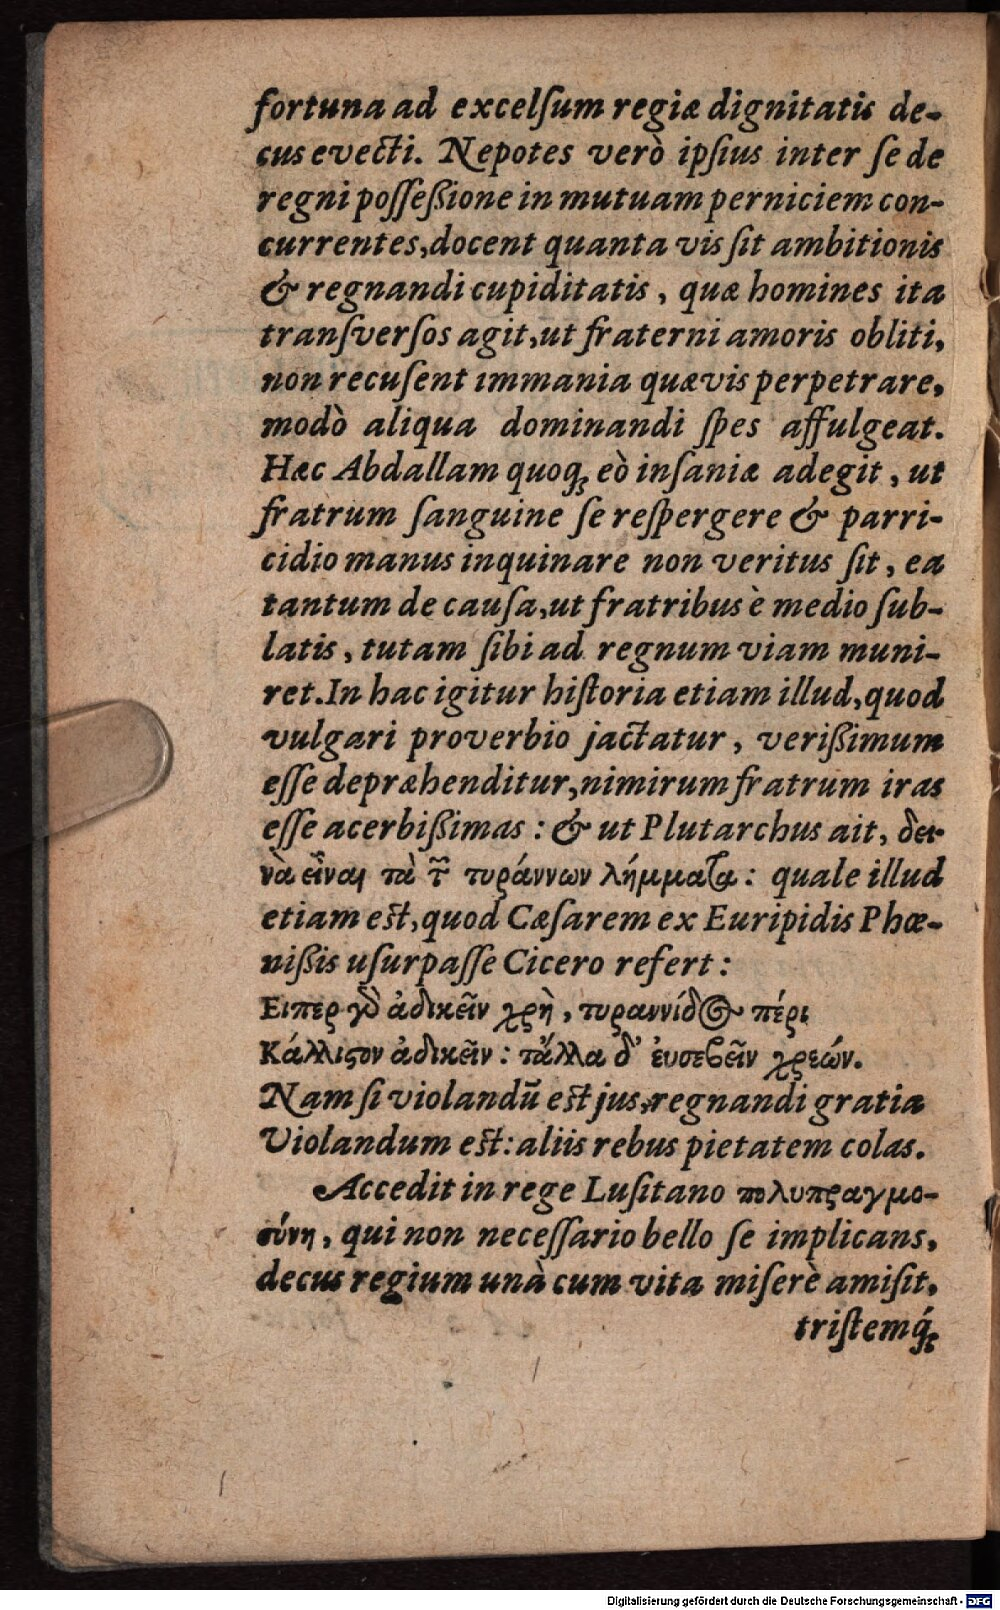 fortuna ad excelſum regiæ dignitatis de-
cus evecti. Nepotes verò ipſius inter ſe de
regni poſſeßione in mutuam perniciem con-
currentes, docent quanta vis ſit ambitionis
& regnandi cupiditatis, quæ homines ita
tranſverſos agit, ut fraterni amoris obliti,
non recuſent immania quævis perpetrare,
modò aliqua dominandi ſpes affulgeat.
Hæc Abdallam quoq; eò inſaniæ adegit, ut
fratrum ſanguine ſe reſpergere & parri-
cidio manus inquinare non veritus ſit, ea
tantum de cauſa, ut fratribus è medio ſub-
latis, tutam ſibi ad regnum viam muni-
ret. In hac igitur hiſtoria etiam illud, quod
vulgari proverbio jactatur, verißimum
eſſe depræhenditur, nimirum fratrum iras
eſſe acerbißimas: & ut Plutarchus ait, δει-
νὰ εἶναι τὰ τ̃ τυράννων λήμματα: quale illud
etiam eſt, quod Cæſarem ex Euripidis Phœ-
nißis uſurpaſſe Cicero refert:
Ειπερ γδ ἀδικεῖν χρὴ, τυραννίδ@ πέρι
Κάλλιϛον ἀδικεῖν: τἄλλα δ' ἐυσεβεῖν χρεών.
Nam ſi violandũ eſt jus, regnandi gratia
Violandum eſt: aliis rebus pietatem colas.
Accedit in rege Luſitano πολυπραγμο-
σύνη, qui non neceſſario bello ſe implicans,
decus regium unà cum vita miſerè amiſit,
triſtemq́;
Digitalisierung gefördert durch die Deutsche Forschungsgemeinschaft - DFG